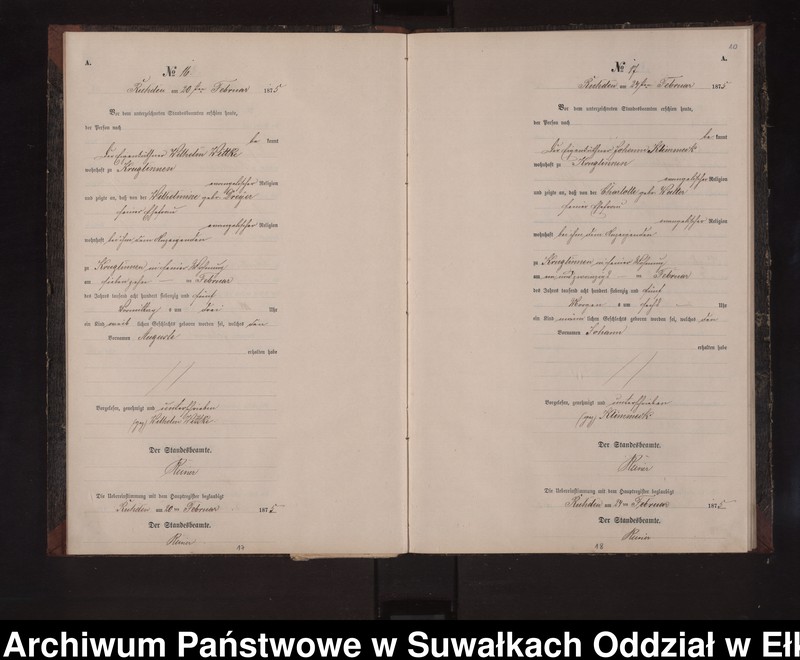 A.
№ 16.
Ruhden am 20ten Februar 1875
Vor dem unterzeichneten Standesbeamten erschien heute,
der Person nach
be kannt
der Eigenkäthner Wilhelm
wohnhaft zu
evangelischer Religion
und zeigte an, daß von der Wilhelmine geb.
seiner Ehefrau
evangelischer Religion
wohnhaft bei ihm dem Anzeigenden
zu in seiner Wohnung
am siebenzehn — en Februar
des Jahres tausend acht hundert siebenzig und fünf
Vormittag s um drei Uhr
ein Kind weib lichen Geschlechts geboren worden sei, welches den
Vornamen Auguste
erhalten habe
Vorgelesen, genehmigt und unterschrieben
(gez) Wilhelm
Der Standesbeamte.
Die Uebereinstimmung mit dem Hauptregister beglaubigt
Ruhden am 20 en Februar 1875
Der Standesbeamte.
17
60
A.
№ 17.
Ruhden am 24ten Februar 1875
Vor dem unterzeichneten Standesbeamten erschien heute,
der Person nach
be kannt
der Eigenkäthner Johann Klimmeck
wohnhaft zu
evangelischer Religion
und zeigte an, daß von der Charlotte geb.
seiner Ehefrau
evangelischer Religion
wohnhaft bei ihm dem Anzeigenden
zu in seiner Wohnung
am ein und zwanzigst — en Februar
des Jahres tausend acht hundert siebenzig und fünf
Morgen s um sechs Uhr
ein Kind männ lichen Geschlechts geboren worden sei, welches den
Vornamen Johann
erhalten habe
Vorgelesen, genehmigt und unterschrieben
(gez) Klimmeck
Der Standesbeamte.
Die Uebereinstimmung mit dem Hauptregister beglaubigt
Ruhden am 24 en Februar 1875
Der Standesbeamte.
18
Archiwum Państwowe w Suwałkach Oddział w Eł